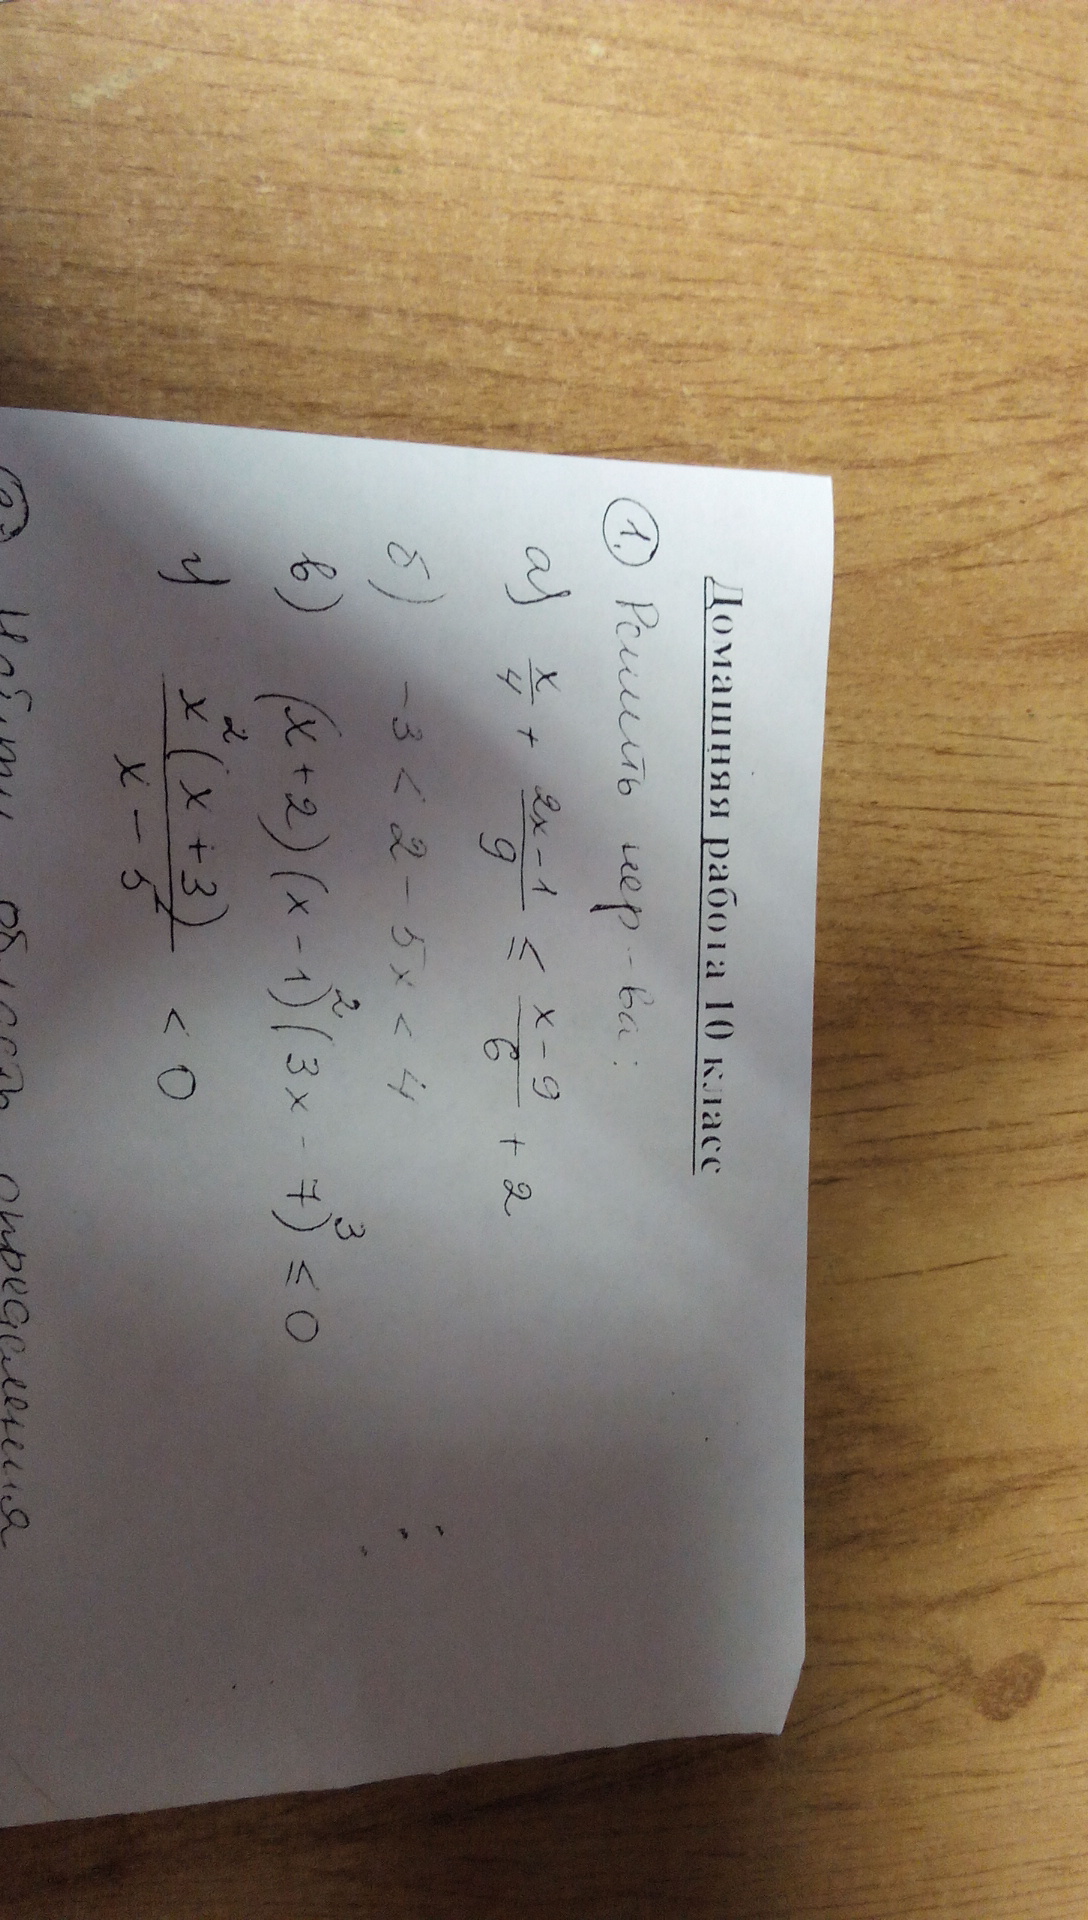 Домашняя работа 10 класс
1. Решить нер-ва:
а) x/4 + (2x-1)/9 ≤ (x-9)/6 + 2
б) -3 < 2 - 5x < 4
в) (x+2)(x-1)²(3x-7)³ ≤ 0
г) x²(x+3)/(x-5) < 0
2. Найти область определения